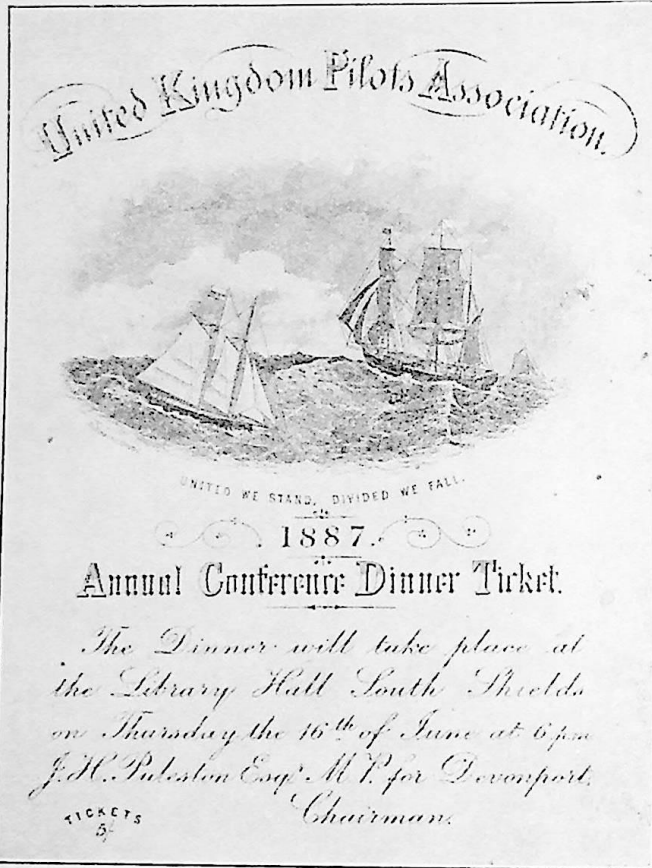 United Kingdom Pilots Association.
UNITED WE STAND, DIVIDED WE FALL.
1887.
Annual Conference Dinner Ticket.
The Dinner will take place at
the Library Hall South Shields
on Thursday the 16th of June at 6 pm
J. H. Puleston Esqr. M.P. for Devonport,
Chairman.
TICKETS
5/